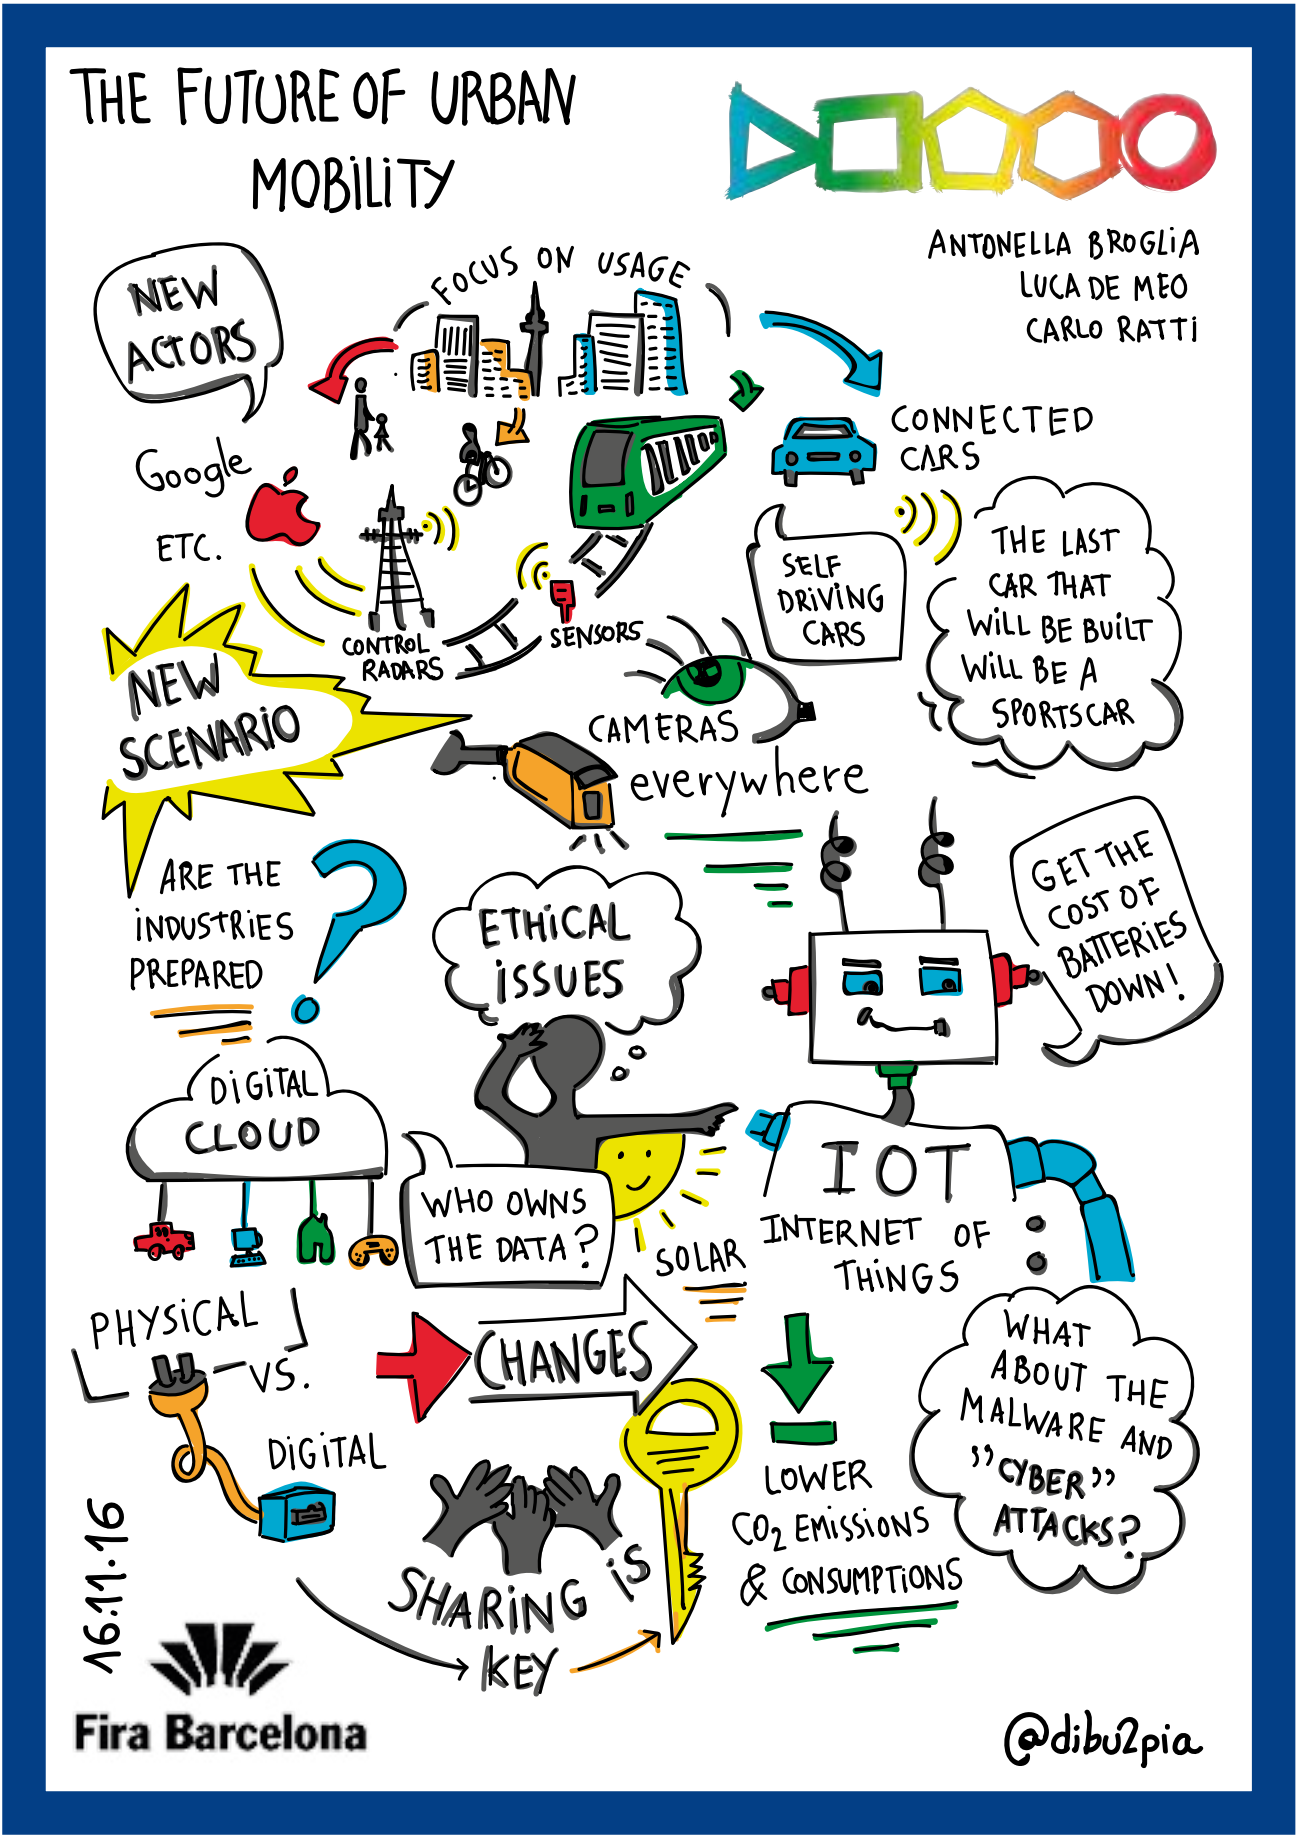 THE FUTURE OF URBAN
MOBiLiTY
ANTONELLA BROGLiA
LUCA DE MEO
CARLO RATTi
NEW
ACTORS
FOCUS ON USAGE
Google
ETC.
CONNECTED
CARS
SELF
DRiViNG
CARS
THE LAST
CAR THAT
WiLL BE BUiLT
WiLL BE A
SPORTSCAR
CONTROL
RADARS
SENSORS
NEW
SCENARiO
CAMERAS
everywhere
ARE THE
iNDUSTRiES
PREPARED
?
ETHiCAL
iSSUES
GET THE
COST OF
BATTERiES
DOWN!
DiGiTAL
CLOUD
WHO OWNS
THE DATA?
SOLAR
IOT
INTERNET OF
THiNGS
:
PHYSiCAL
VS.
DiGiTAL
CHANGES
WHAT
ABOUT THE
MALWARE AND
”CYBER”
ATTACKS?
LOWER
CO2 EMiSSiONS
& CONSUMPTiONS
SHARiNG iS
KEY
16.11.16
Fira Barcelona
@dibu2pia